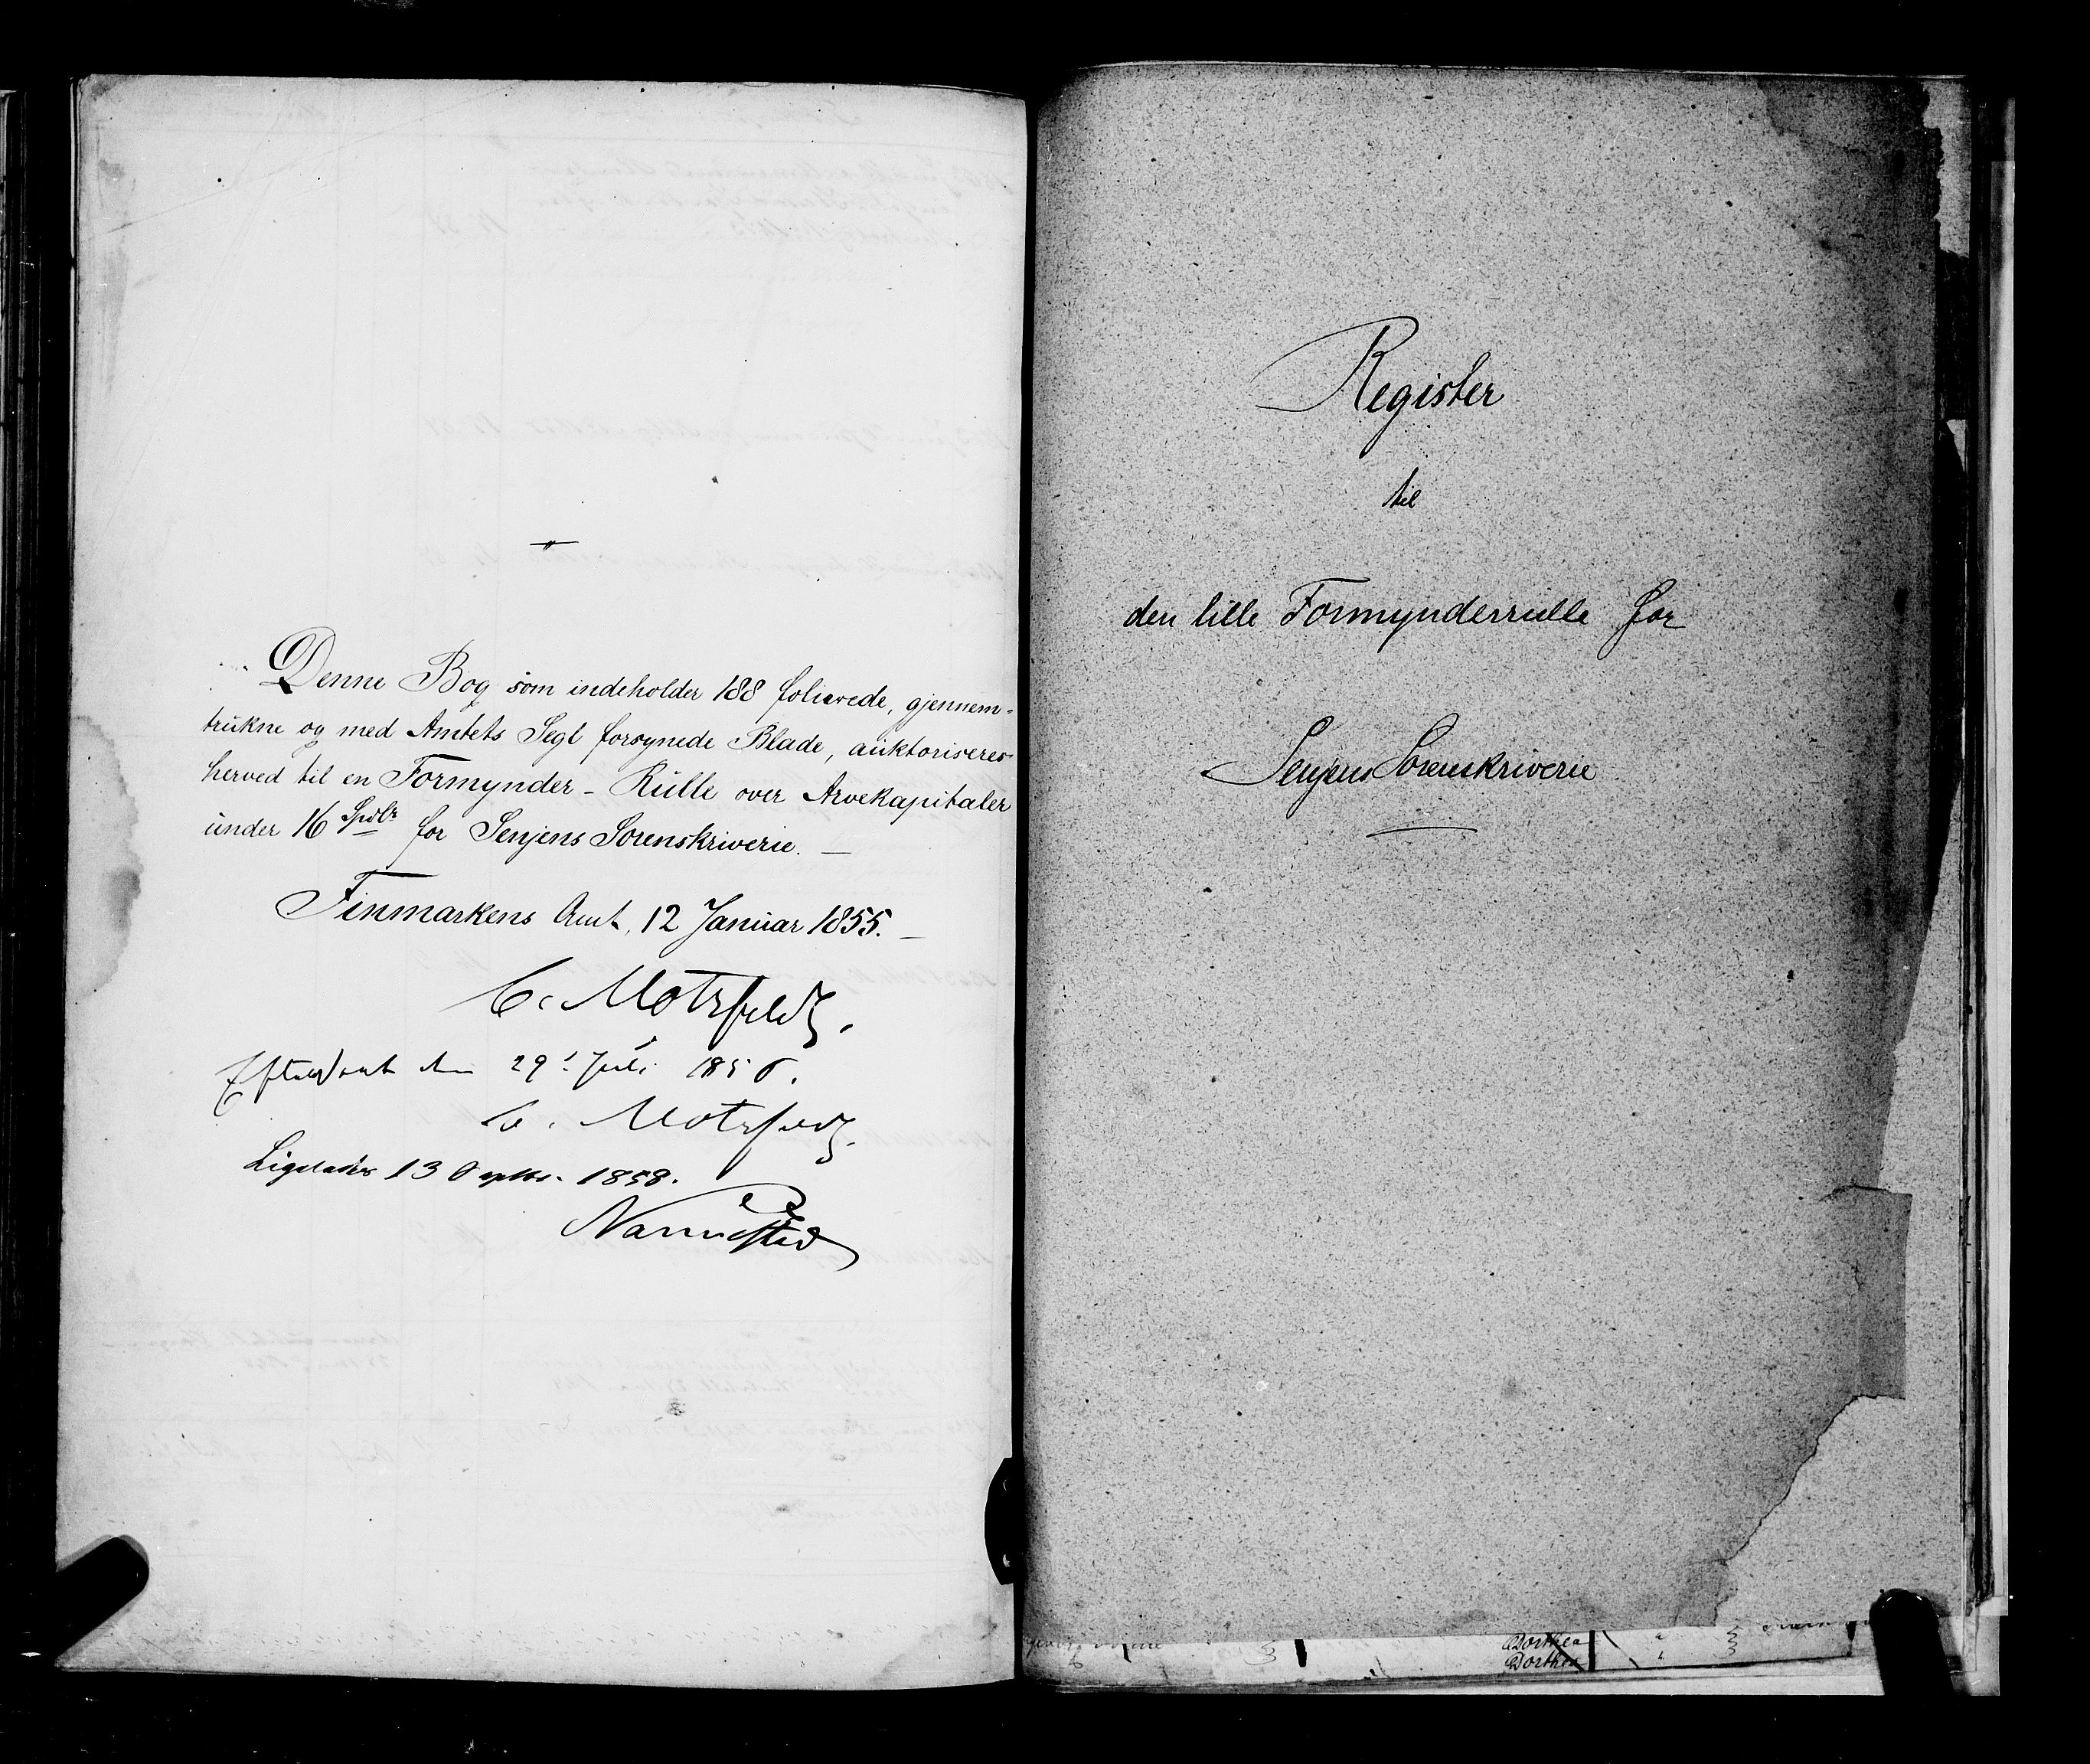 Denne Bog som indeholder 188 folierede, gjennem-
trukne og med Amtets Segl forsynede Blade, auktoriseres
herved til en Formynder - Rulle over Arvekapitaler
under 16 Spdlr for Senjens Sorenskriverie. —
Finmarkens Amt, 12 Januar 1855. —
C. Motzfeldt.
Efterseet den 29' Juli 1856.
C. Motzfeldt.
Ligeledes 13 Septbr. 1858.
Register
til
den lille Formynderrulle for
Senjens Sorenskriverie
Dorthea
Dorthea